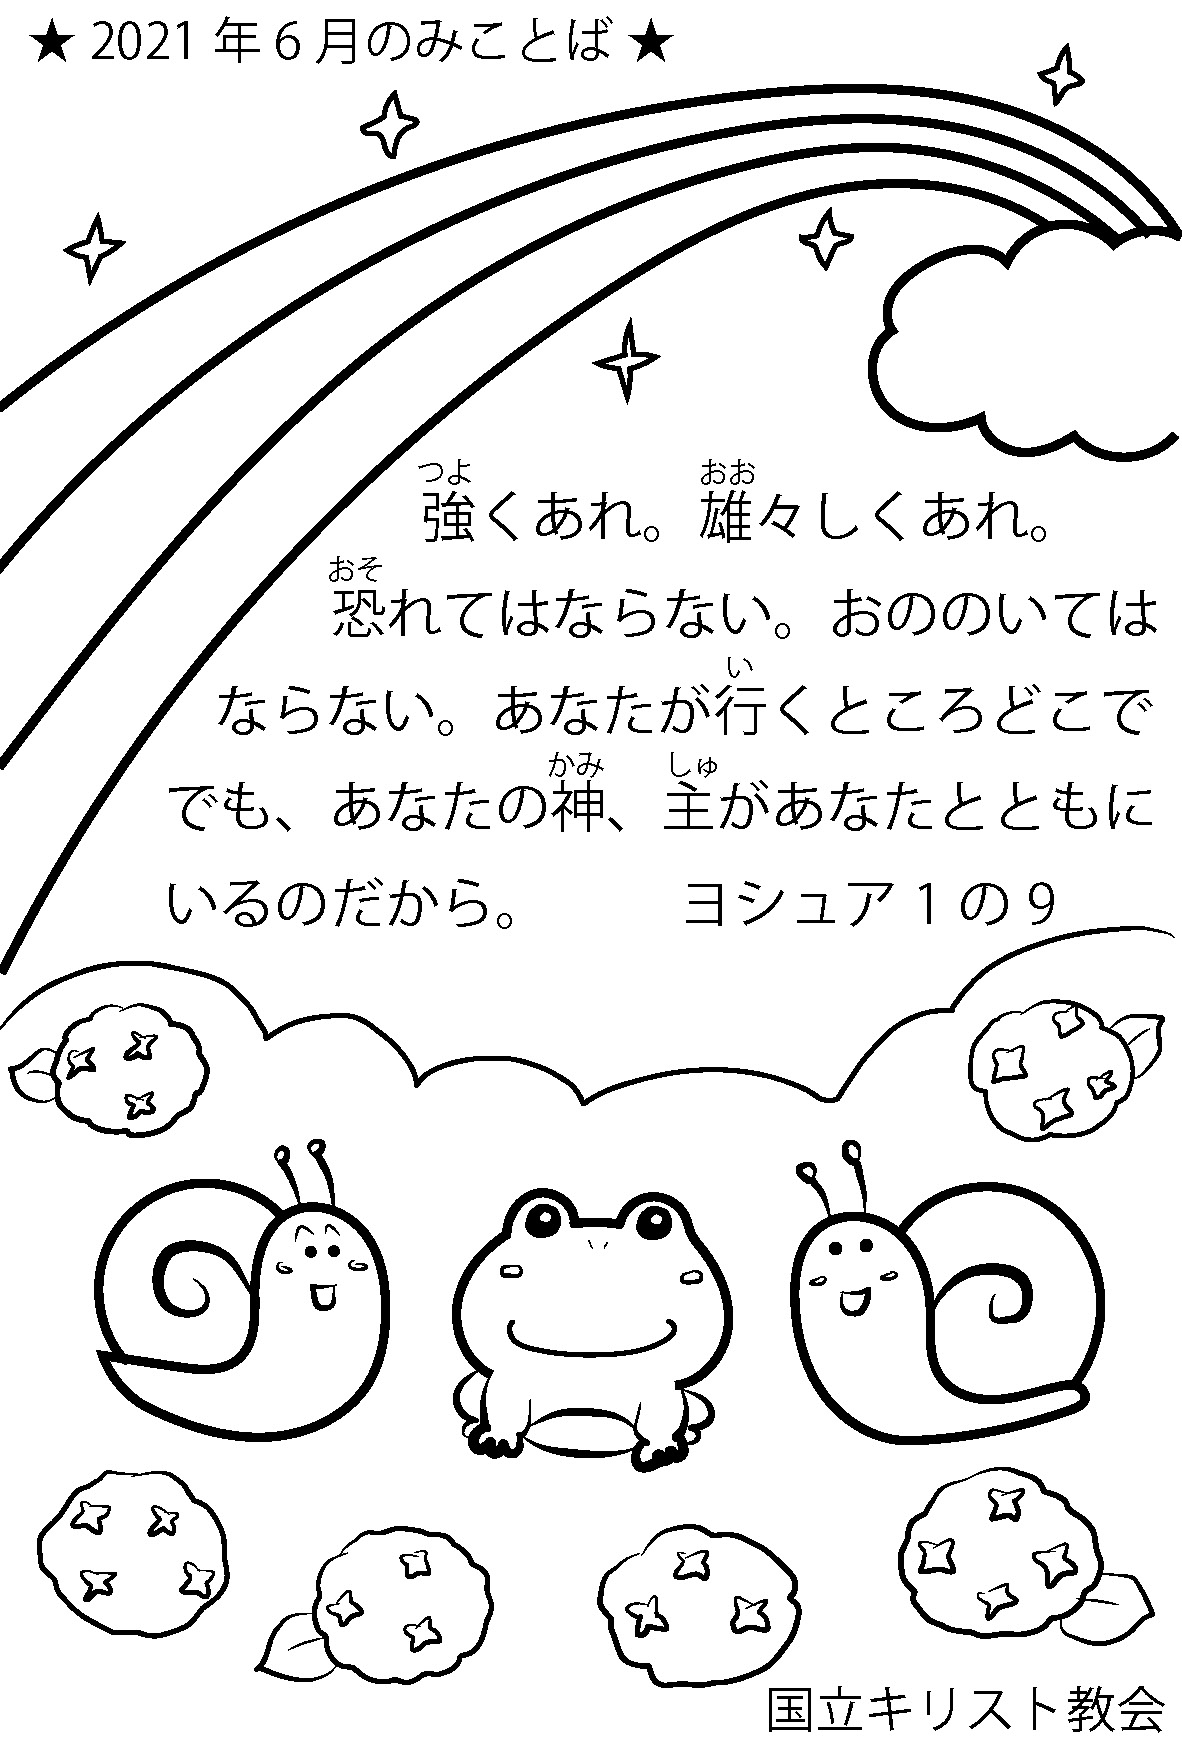 ★ 2021 年 6 月のみことば ★
つよ おお
強くあれ。雄々しくあれ。
おそ
恐れてはならない。おののいては
い
ならない。あなたが行くところどこで
かみ しゅ
でも、あなたの神、主があなたとともに
いるのだから。 ヨシュア 1 の 9
国立キリスト教会